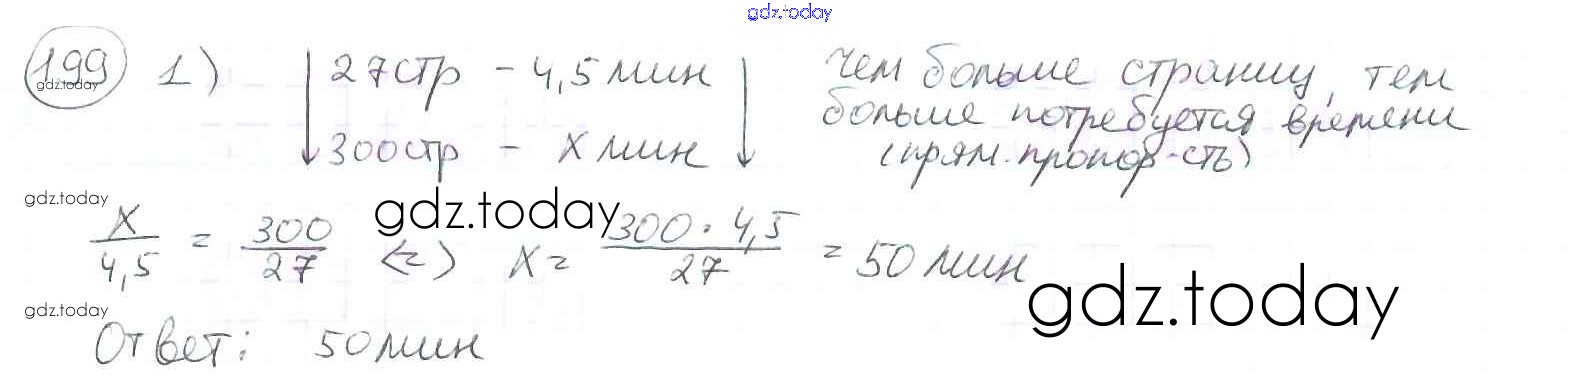 gdz.today
199 1) 27стр - 4,5 мин чем больше страниц, тем
gdz.today
больше потребуется времени
300стр - x мин (прям. пропор-сть)
gdz.today
gdz.today
x/4,5 = 300/27 <=> x = 300 · 4,5/27 = 50 мин
gdz.today
gdz.today
Ответ: 50 мин